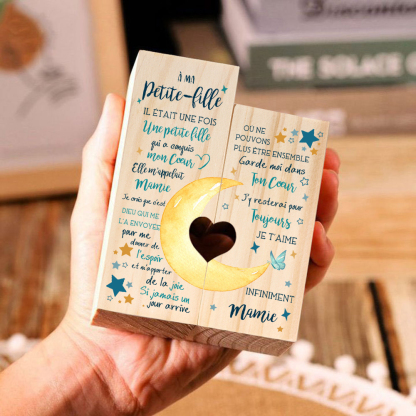 À MA
Petite-fille
IL ÉTAIT UNE FOIS
Une petite fille
qui a conquis
mon Cœur
Elle m'appelait
Mamie
Je crois que c'est
DIEU QUI ME
L'A ENVOYÉE
pour me
donner de
l'espoir
et m'apporter
de la joie
Si jamais un
jour arrive
OÙ NE
POUVONS
PLUS ÊTRE ENSEMBLE
Garde moi dans
Ton Cœur
J'y resterai pour
Toujours
JE T'AIME
INFINIMENT
Mamie
THE SOLACE O